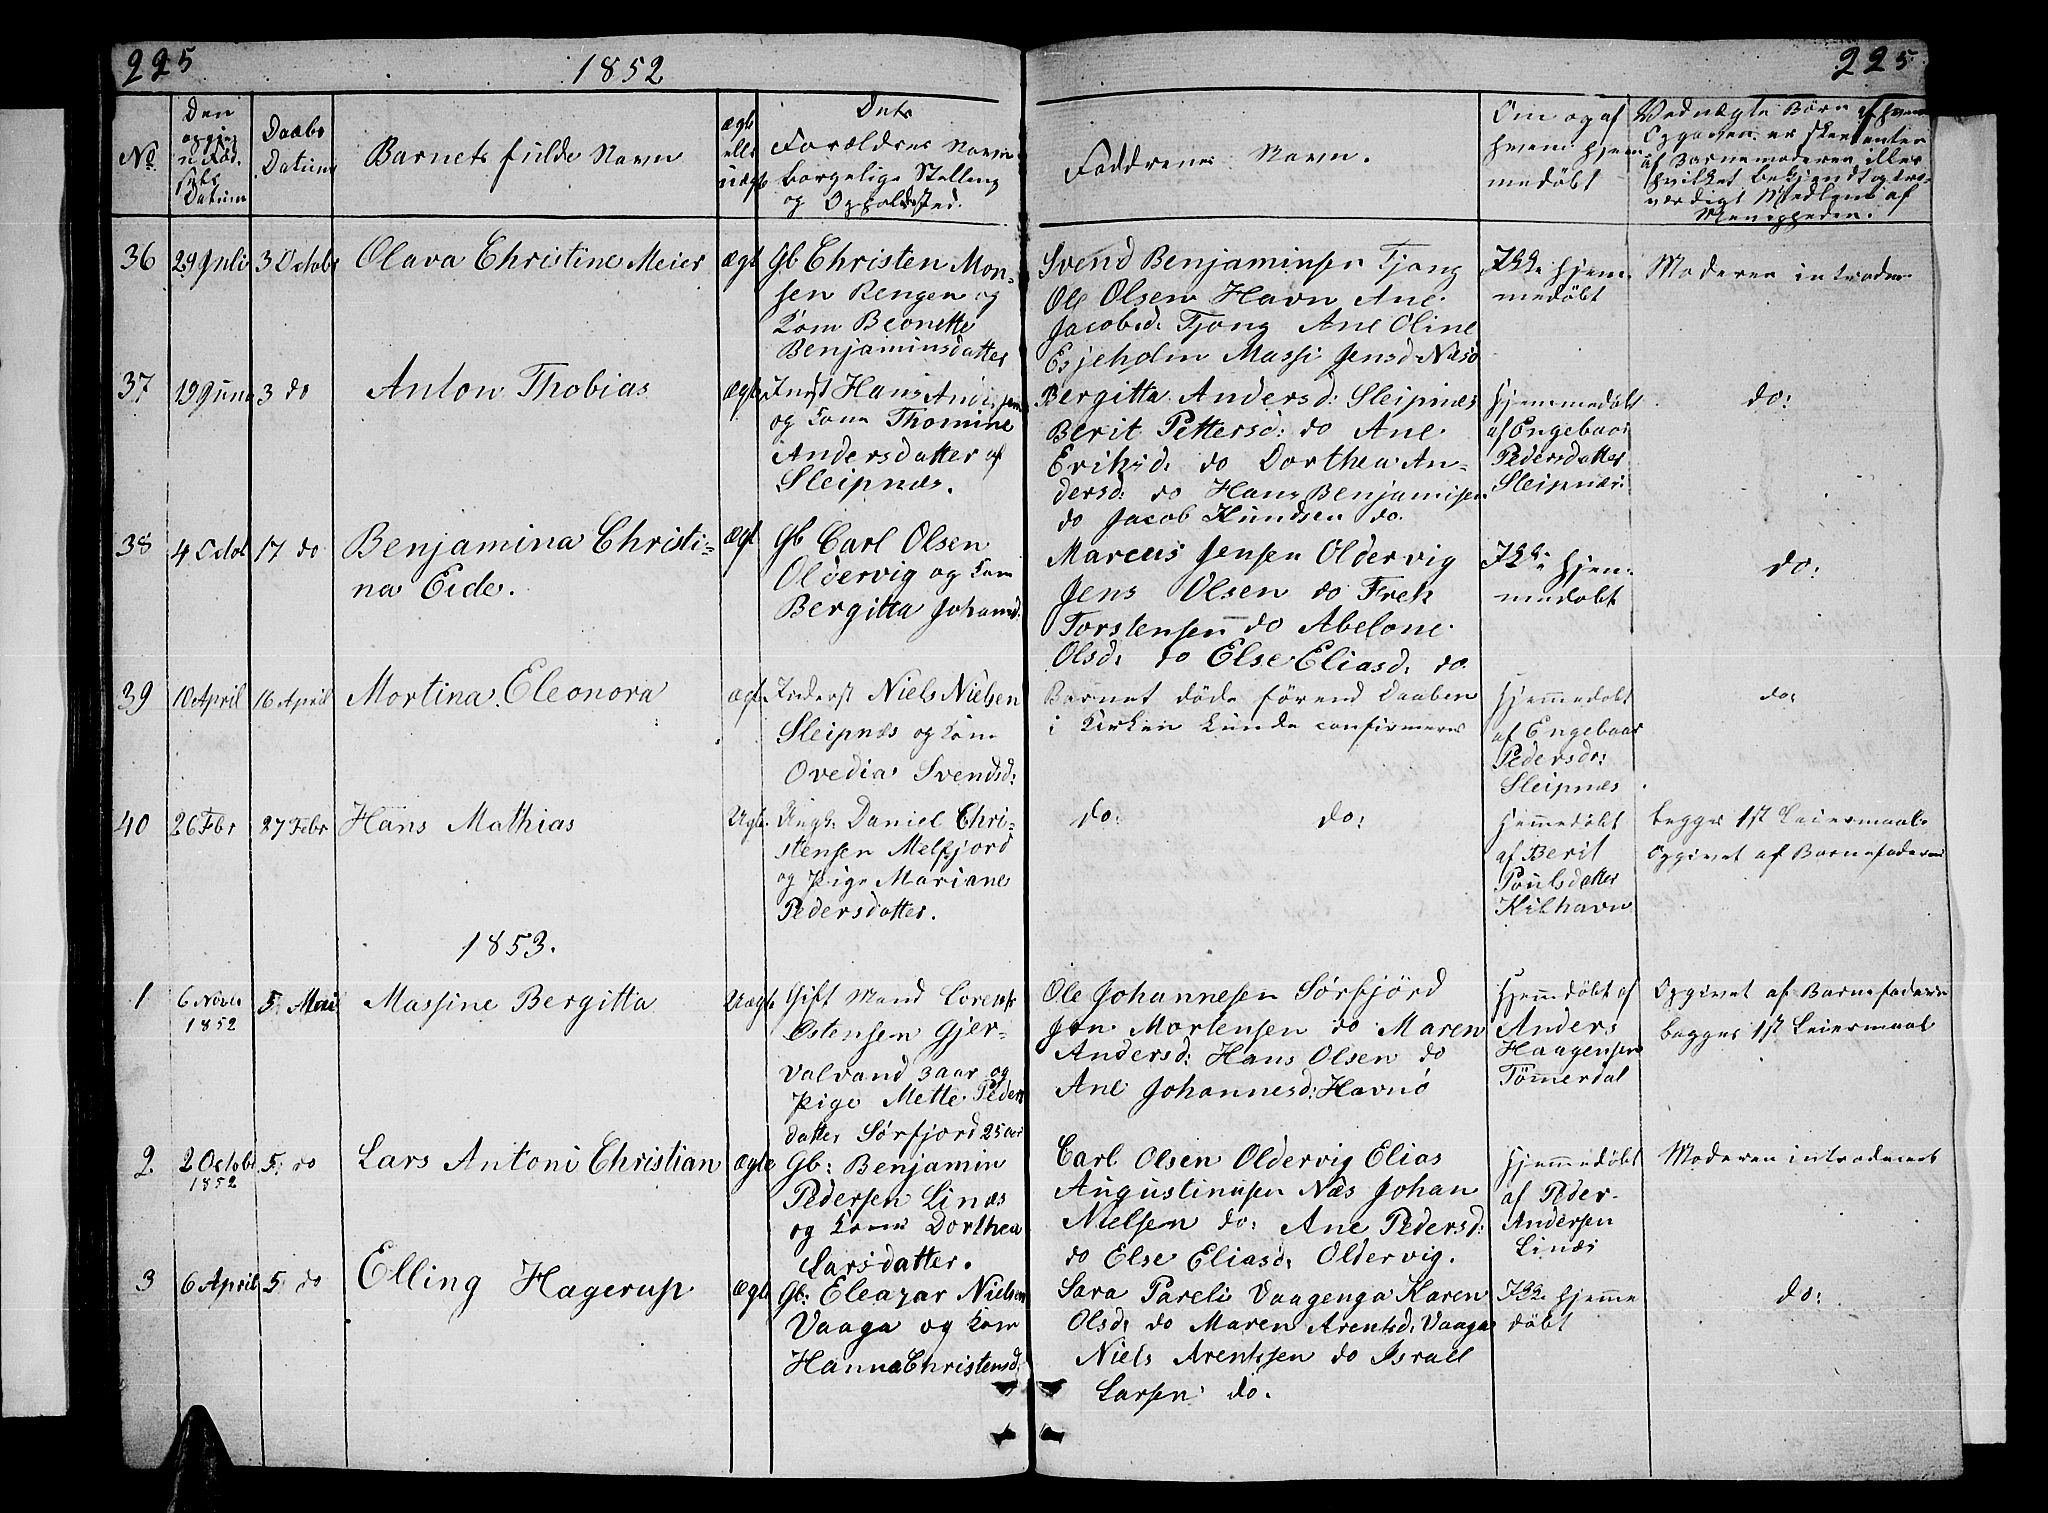 225
1852
225
No
Den
opgiv
n Fød
sels
Datum
Daabs
Datum
Barnets fulde Navn
ægte
elle
uægte
Dets
Forældres Navn
borgelige Stelling
og Opholdsted.
Faddrenes Navn.
Om og af
hvem hjem
medøbt
Ved uægte Børn af hvem
Opgaven er skeet enten
af Barnemoderen eller
hvilket bekjendt og tro-
værdigt Medlem af
Menigheden.
36
29 Juli
3 Octobr
Olava Christine Meier
ægt
Gb Christen Mon-
sen Rengen og
Kone Beonette
Benjaminsdatter
Svend Benjaminsen Tjong
Ole Olsen Havn Ane
Jacobsd: Tjong Ane Oline
Esjeholm Massi Jensd Næsø
Ikke hjem-
medøbt
Moderen introdu
37
19 Juni
3 do
Anton Thobias
ægte
Indst Hans Andersen
og Kone Thomine
Andersdatter af
Sleipnæs.
Bergitta Andersd: Sleipnæs
Berit Pettersd: do Ane
Eriksd: do Dorthea An-
dersd: do Hans Benjaminsen
do Jacob Knudsen do.
hjemmedøbt
af Engebaar
Pedersdatter
Sleipnæs:
do:
38
4 Octob
17 do
Benjamina Christi-
na Eide.
ægt
Gb Carl Olsen
Oldervig og Kone
Bergitta Johansd:
Marcus Jensen Oldervig
Jens Olsen do Frek
Torstensen do Abelone
Olsd: do Else Eliasd: do
Ikke hjem-
medøbt
do:
39
10 April
16 April
Mortina Eleonora
ægte
Inderst Niels Nielsen
Sleipnæs og Kone
Ovedia Svendsd:
Barnet døde førend Daaben
i Kirken kunde confirmeres
hjemmedøbt
af Engebaar
Pedersdr:
Sleipnæs
do:
40
26 Fbr
27 Febr
Hans Mathias
Uægte
Ungk: Daniel Chri-
stensen Melfjord
og Pige Mariane
Pedersdatter.
do: do:
hjemmedøbt
af Berit
Poulsdatter
Kilhavn
begges 1st Leiermaal
Opgivet af Barnefaderen
1853.
1
6 Novbr
1852
5 Mai
Massine Bergitta
Uægte
Gift Mand Lorents
Østensen Gjer-
valvand 3 aar og
Pige Mette Peders
datter Sørfjord 25 aar
Ole Johannesen Sørfjörd
Jon Mortensen do Maren
Andersd: Hans Olsen do
Ane Johannesd: Havnö
hjemmdøbt af
Anders
Haagensen
Tömmerdal
Opgivet af Barnefaderen
begges 1st Leiermaal
2.
2 Octobr
1852
5: do
Lars Antoni Christian
ægte
Gb: Benjamin
Pedersen Linæs
og Kone Dorthea
Larsdatter.
Carl Olsen Oldervig Elias
Augustinusen Næs Johan
Nielsen do: Ane Pedersd:
do Else Eliasd: Oldervig.
hjemmedøbt
af Peder
Andersen
Linæs
Moderen introduceret
3
6 April
5: do
Elling Hagerup
ægte
Gb: Eleazar Nielsen
Vaaga og Kone
Hanna Christensd:
Sara Pareli Vaagenga Karen
Olsd: do Maren Arentsd: Vaaga
Niels Arentsen do Israel
Larsen do.
Ikke hjemme
døbt
do: